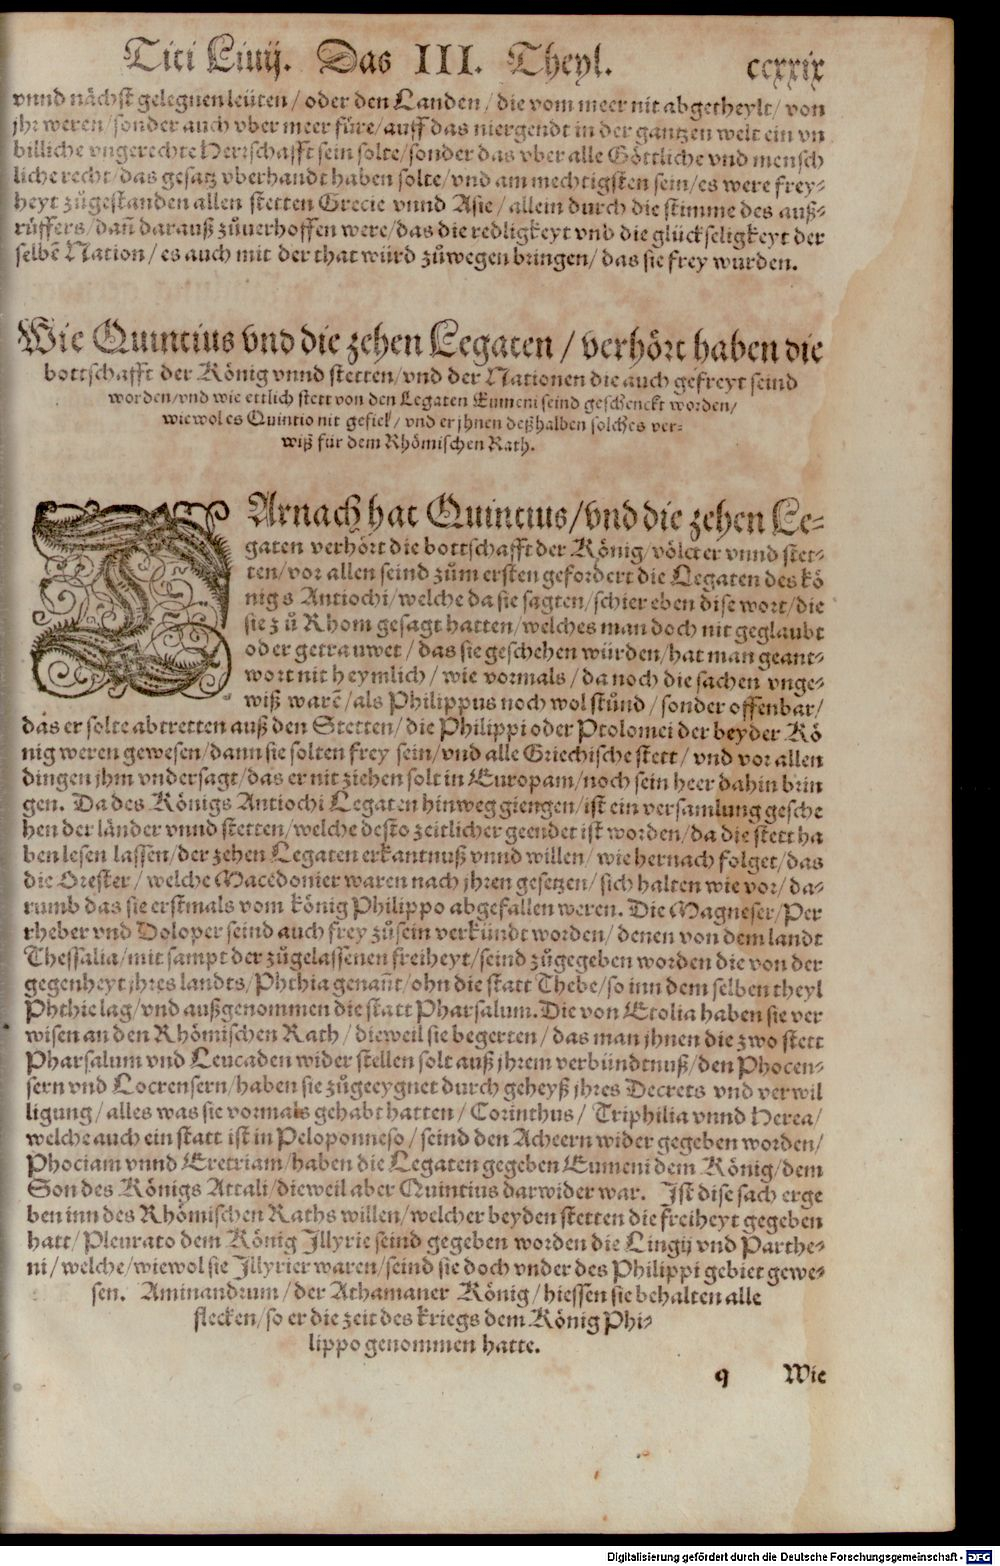 Titi Liuij. Das III. Theyl. ccxxix
vnnd nächst gelegnen leüten/ oder den Landen/ die vom meer nit abgetheylt/ von
jhr weren/ sonder auch vber meer füre/ auff das niergendt in der gantzen welt ein vn
billiche vngerechte Herrschafft sein solte/ sonder das vber alle Göttliche vnd mensch
liche recht/ das gesatz vberhandt haben solte/ vnd am mechtigsten sein/ es were frey-
heyt zůgestanden allen stetten Grecie vnnd Asie/ allein durch die stimme des auß-
růffers/ dañ darauß zůuerhoffen were/ das die redligkeyt vnd die glückseligkeyt der
selbẽ Nation/ es auch mit der that würd zůwegen bringen/ das sie frey wurden.
Wie Quintius vnd die zehen Legaten/ verhört haben die
bottschafft der König vnnd stetten/ vnd der Nationen die auch gefreyt seind
worden/ vnd wie ettlich stett von den Legaten Eumeni seind geschenckt worden/
wiewol es Quintio nit gefiel/ vnd er jhnen deßhalben solches ver-
wiß für dem Rhömischen Rath.
DArnach hat Quintius/ vnd die zehen Le-
gaten verhört die bottschafft der König/ völcker vnnd stet-
ten/ vor allen seind zům ersten gefordert die Legaten des kö
nigs Antiochi/ welche da sie sagten/ schier eben dise wort/ die
sie zů Rhom gesagt hatten/ welches man doch nit geglaubt
oder getrauwet/ das sie geschehen würden/ hat man geant-
wort nit heymlich/ wie vormals/ da noch die sachen vnge-
wiß warẽ/ als Philippus noch wol stůnd/ sonder offenbar/
das er solte abtretten auß den Stetten/ die Philippi oder Ptolomei der beyder Kö
nig weren gewesen/ dann sie solten frey sein/ vnd alle Griechische stett/ vnd vor allen
dingen jhm vndersagt/ das er nit ziehen solt in Europam/ noch sein heer dahin brin
gen. Da des Königs Antiochi Legaten hinweg giengen/ ist ein versamlung gesche
hen der länder vnnd stetten/ welche desto zeitlicher geendet ist worden/ da die stett ha
ben lesen lassen/ der zehen Legaten erkantnuß vnnd willen/ wie hernach folget/ das
die Orester/ welche Macedonier waren nach jhren gesetzen/ sich halten wie vor/ da-
rumb das sie erstmals vom könig Philippo abgefallen weren. Die Magneser/ Per
rheber vnd Doloper seind auch frey zůsein verkündt worden/ denen von dem landt
Thessalia/ mit sampt der zůgelassenen freiheyt/ seind zůgegeben worden die von der
gegenheyt jhres landts/ Phthia genañt/ ohn die statt Thebe/ so inn dem selben theyl
Phthie lag/ vnd außgenommen die statt Pharsalum. Die von Etolia haben sie ver
wisen an den Rhömischen Rath/ dieweil sie begerten/ das man jhnen die zwo stett
Pharsalum vnd Leucaden wider stellen solt auß jhrem verbündtnuß/ den Phocen-
sern vnd Locrensern/ haben sie zůgeeygnet durch geheyß jhres Decrets vnd verwil
ligung/ alles was sie vormals gehabt hatten/ Corinthus/ Triphilia vnnd Herea/
welche auch ein statt ist in Peloponneso/ seind den Acheern wider gegeben worden/
Phociam vnnd Eretriam/ haben die Legaten gegeben Eumeni dem König/ dem
Son des Königs Attali/ dieweil aber Quintius darwider war. Ist dise sach erge
ben inn des Rhömischen Raths willen/ welcher beyden stetten die freiheyt gegeben
hatt/ Pleurato dem König Illyrie seind gegeben worden die Lingij vnd Parthe-
ni/ welche/ wiewol sie Illyrier waren/ seind sie doch vnder des Philippi gebiet gewe-
sen. Aminandrum/ der Athamaner König/ hiessen sie behalten alle
flecken/ so er die zeit des kriegs dem König Phi-
lippo genommen hatte.
q Wie
Digitalisierung gefördert durch die Deutsche Forschungsgemeinschaft - DFG